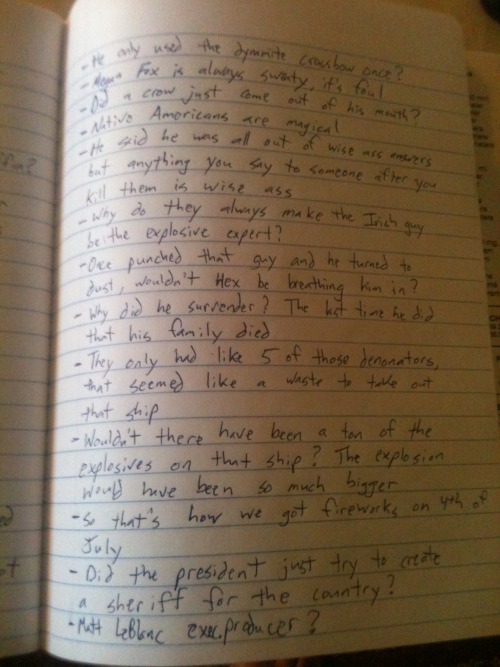 - He only used the dynamite crossbow once?
- Megan Fox is always sweaty, it's foul
- Did a crow just come out of his mouth?
- Native Americans are magical
- He said he was all out of wise ass answers
but anything you say to someone after you
kill them is wise ass
- Why do they always make the Irish guy
be the explosive expert?
- Once punched that guy and he turned to
dust, wouldn't Hex be breathing him in?
- Why did he surrender? The last time he did
that his family died
- They only had like 5 of those denonators,
that seemed like a waste to take out
that ship
- Wouldn't there have been a ton of the
explosives on that ship? The explosion
would have been so much bigger
- So that's how we got fireworks on 4th of
July
- Did the president just try to create
a sheriff for the country?
- Matt LeBlanc exec. producer?